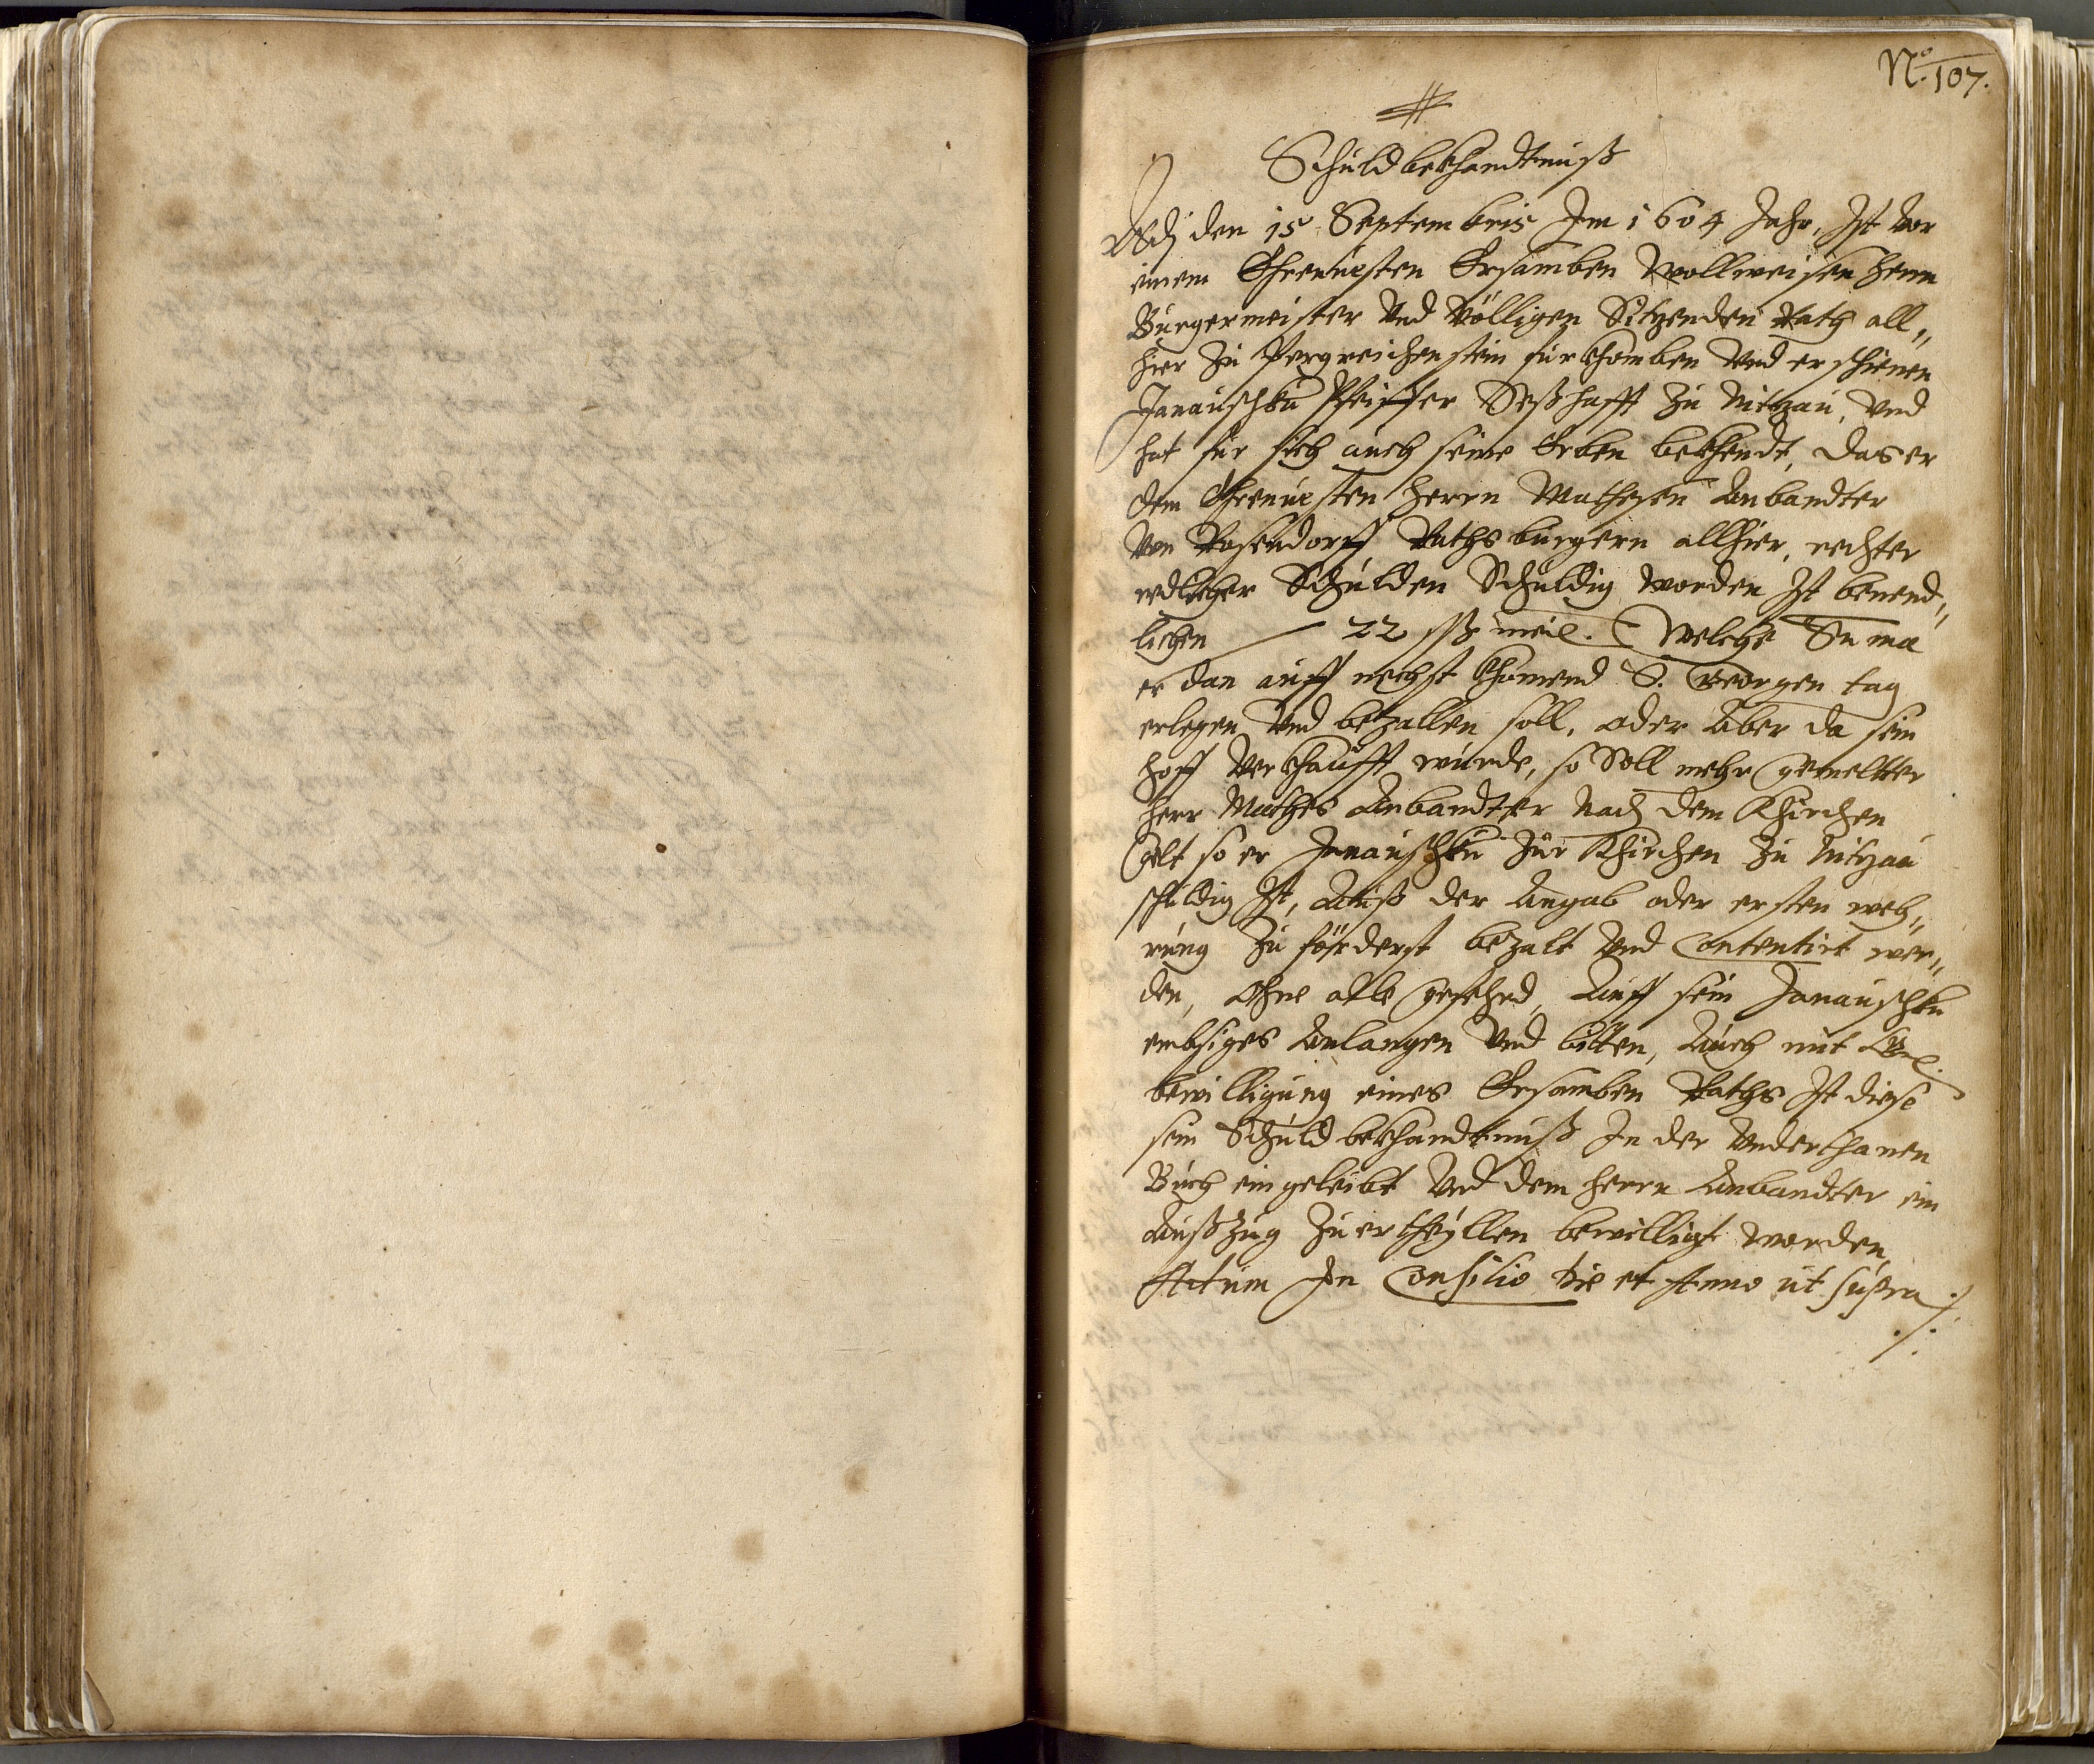 No. 107.
Schuldbekhandtnuß
Adj den 15 Septembris Im 1604 Jahr, Ist vor
einem Ehrnuesten Ersamben Wollweisen herrn
Burgermeister vnd völligen Sitzenden Rath all„
hier zu Pergreichenstein fürkhomben vnd erschienen
Janauschku Pfeiffer Seßhafft zu Nitzau, vnd
hat für sich auch seine Erben bekhendt, das er
dem Ehrnuesten herrn Mathesen Anbandter
von Rosendorff Rathsburgern allhier, rechter
redlicher Schulden Schuldig worden Ist benend„
lichen 22 ßß meiß. Welche Suma
er dan auff nechst khomend S. Georgen tag
erlegen vnd bezallen soll, oder Aber da sein
hoff verkhaufft würde, so Soll mehr gemeltter
herr Mathes Anbandter Nach dem Khirchen
gelt so er Janauschku zur Khirchen zu Nitzau
schuldig Ist, Auß der Angab oder ersten weh„
rung zu förderst bezalt vnd Contentirt wer„
den, Ohne alle gefehrd, Auff sein Janauschku
embsiges Anlangen vnd bitten, Auch mit
bewilligung eines Ersamben Raths Ist diese
sein Schuldbekhandtnuß In der Vnderthanen
Buch eingeleibt vnd dem herrn Anbandter ein
Außzug zuertheyllen bewilligt worden
Actum In Consilio die et Anno ut supra ./.
./.